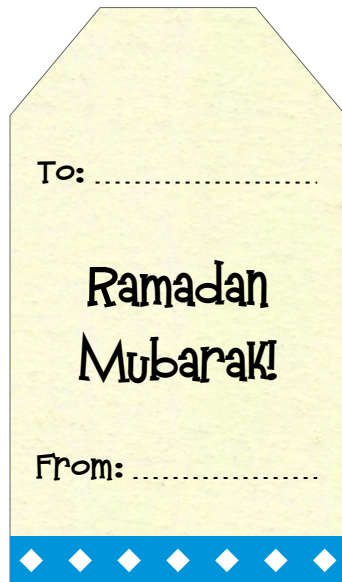 To: ........................
Ramadan
Mubarak!
From: ....................